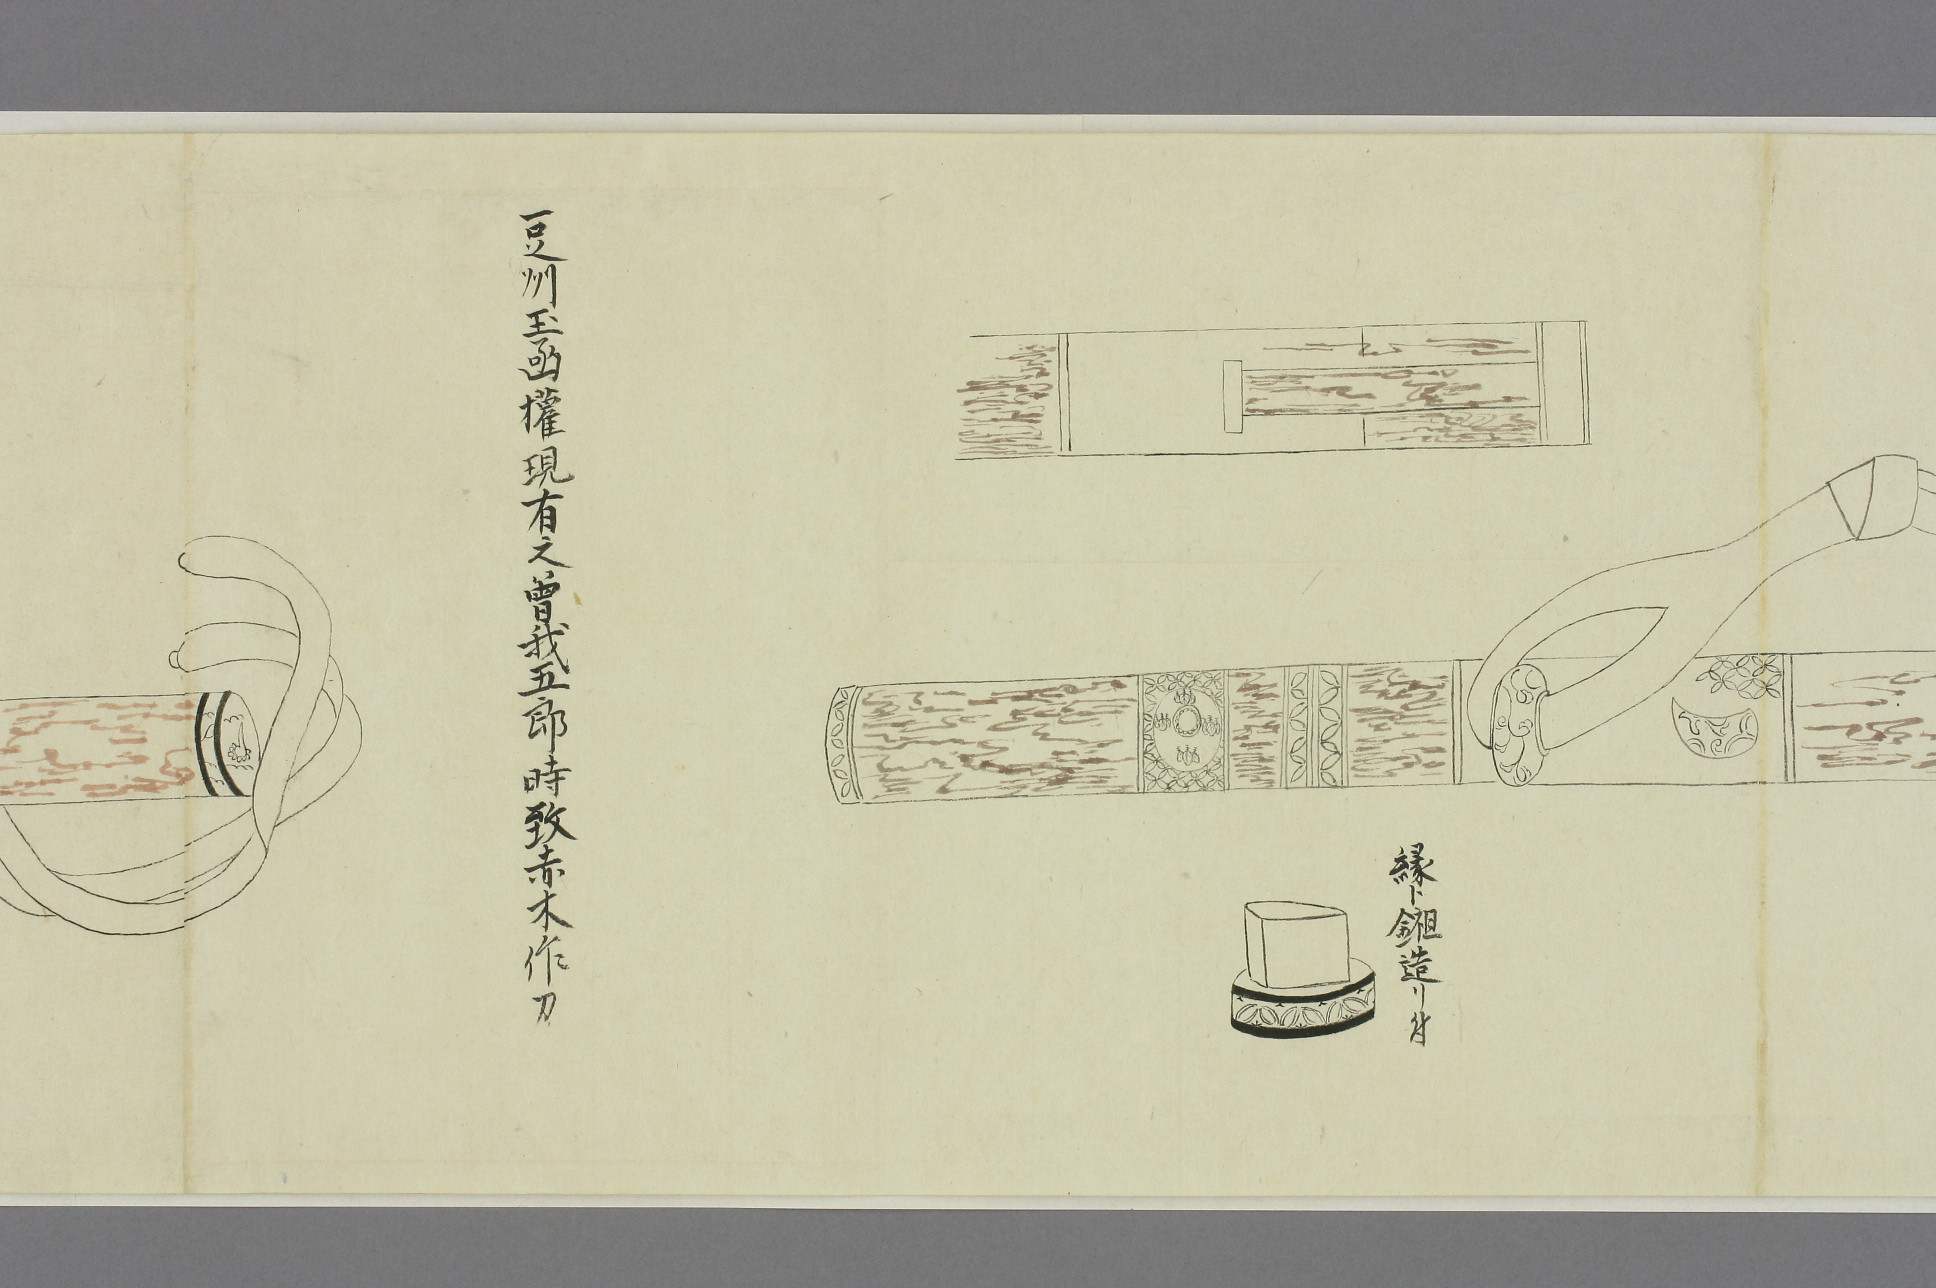 縁ト鎺造リ付
豆州玉函權現有之曾我五郎時致赤木作刀